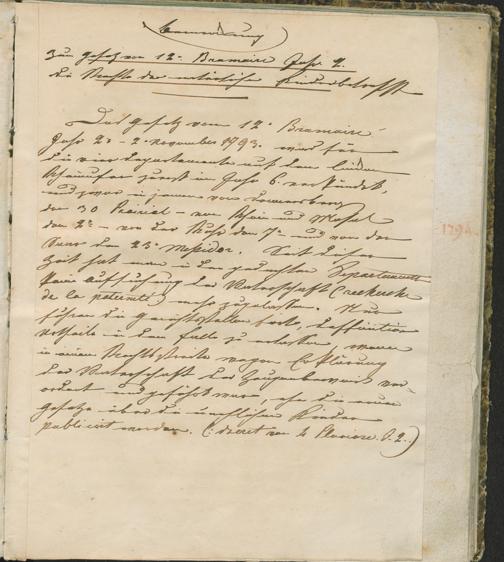 Bemerkung
zum Gesetz vom 12ⁿ Brumaire Jahr 2.
die Rechte der natürlichen Kinder betrefft
Das Gesetz vom 12ⁿ Brumaire
Jahr 2ⁿ - 2. November 1793. war für
die vier Departemente auf dem linken
Rheinufer zuerst im Jahr 6. verkündet,
und zwar in jenem von Donnersberg
den 30 Prairial - von Rhein und Mosel
den 2ⁿ - von der Ruhr den 7ⁿ und von der
Saar den 23ⁿ Messidor. Seit dieser
Zeit hat man in den gedachten Departements
keine Aufsuchung der Vaterschaft (recherche
de la paternité) mehr zugelassen. Nur
fuhren die Gerichtsstellen fort, definitive
Urtheile in dem Falle zu erlassen, wenn
in einem Rechtsstreite wegen Erklärung
der Vaterschaft der Zeugenbeweis ver-
ordnet und geführt war, ehe die neuen
Gesetze über die unehlichen Kinder
publicirt worden. (: decret vom 4 Pluviose J. 2.)
1794.